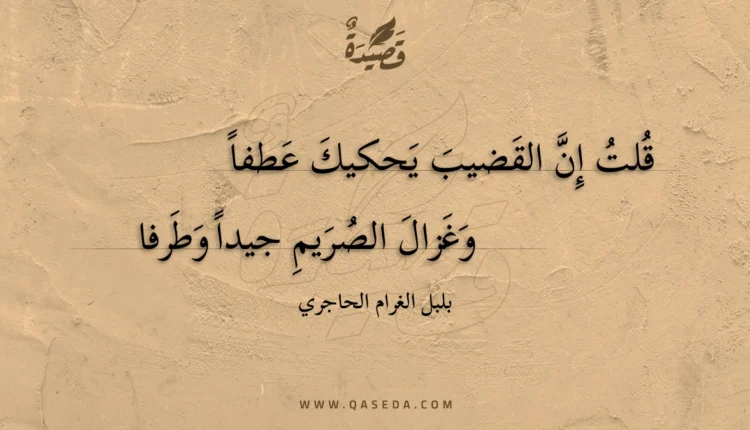 قَصِيدَةٌ
قُلتُ إِنَّ القَضيبَ يَحكيكَ عَطفاً
وَغَزالَ الصُرَيمِ جيداً وَطَرفا
بلبل الغرام الحاجري
WWW.QASEDA.COM